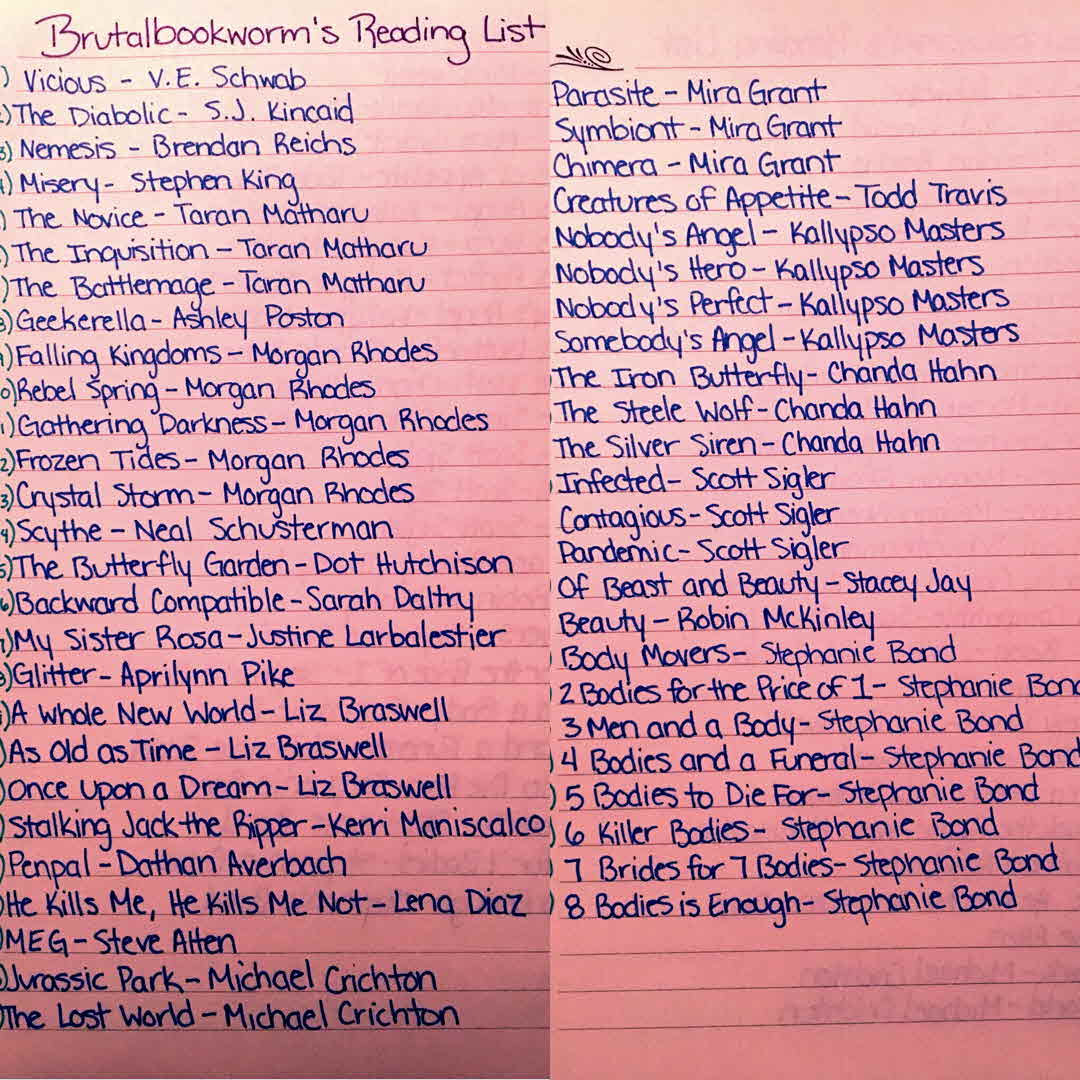 Brutalbookworm's Reading List
) Vicious - V.E. Schwab
) The Diabolic - S.J. Kincaid
3) Nemesis - Brendan Reichs
) Misery - Stephen King
) The Novice - Taran Matharu
) The Inquisition - Taran Matharu
) The Battlemage - Taran Matharu
8) Geekerella - Ashley Poston
) Falling Kingdoms - Morgan Rhodes
0) Rebel Spring - Morgan Rhodes
1) Gathering Darkness - Morgan Rhodes
2) Frozen Tides - Morgan Rhodes
3) Crystal Storm - Morgan Rhodes
4) Scythe - Neal Schusterman
5) The Butterfly Garden - Dot Hutchison
6) Backward Compatible - Sarah Daltry
7) My Sister Rosa - Justine Larbalestier
8) Glitter - Aprilynn Pike
) A Whole New World - Liz Braswell
) As Old as Time - Liz Braswell
) Once Upon a Dream - Liz Braswell
) Stalking Jack the Ripper - Kerri Maniscalco
) Penpal - Dathan Averbach
) He Kills Me, He Kills Me Not - Lena Diaz
) MEG - Steve Alten
) Jurassic Park - Michael Crichton
) The Lost World - Michael Crichton
Parasite - Mira Grant
Symbiont - Mira Grant
Chimera - Mira Grant
Creatures of Appetite - Todd Travis
Nobody's Angel - Kallypso Masters
Nobody's Hero - Kallypso Masters
Nobody's Perfect - Kallypso Masters
Somebody's Angel - Kallypso Masters
The Iron Butterfly - Chanda Hahn
The Steele Wolf - Chanda Hahn
The Silver Siren - Chanda Hahn
) Infected - Scott Sigler
Contagious - Scott Sigler
Pandemic - Scott Sigler
) Of Beast and Beauty - Stacey Jay
Beauty - Robin McKinley
) Body Movers - Stephanie Bond
) 2 Bodies for the Price of 1 - Stephanie Bond
) 3 Men and a Body - Stephanie Bond
) 4 Bodies and a Funeral - Stephanie Bond
) 5 Bodies to Die For - Stephanie Bond
) 6 Killer Bodies - Stephanie Bond
) 7 Brides for 7 Bodies - Stephanie Bond
) 8 Bodies is Enough - Stephanie Bond